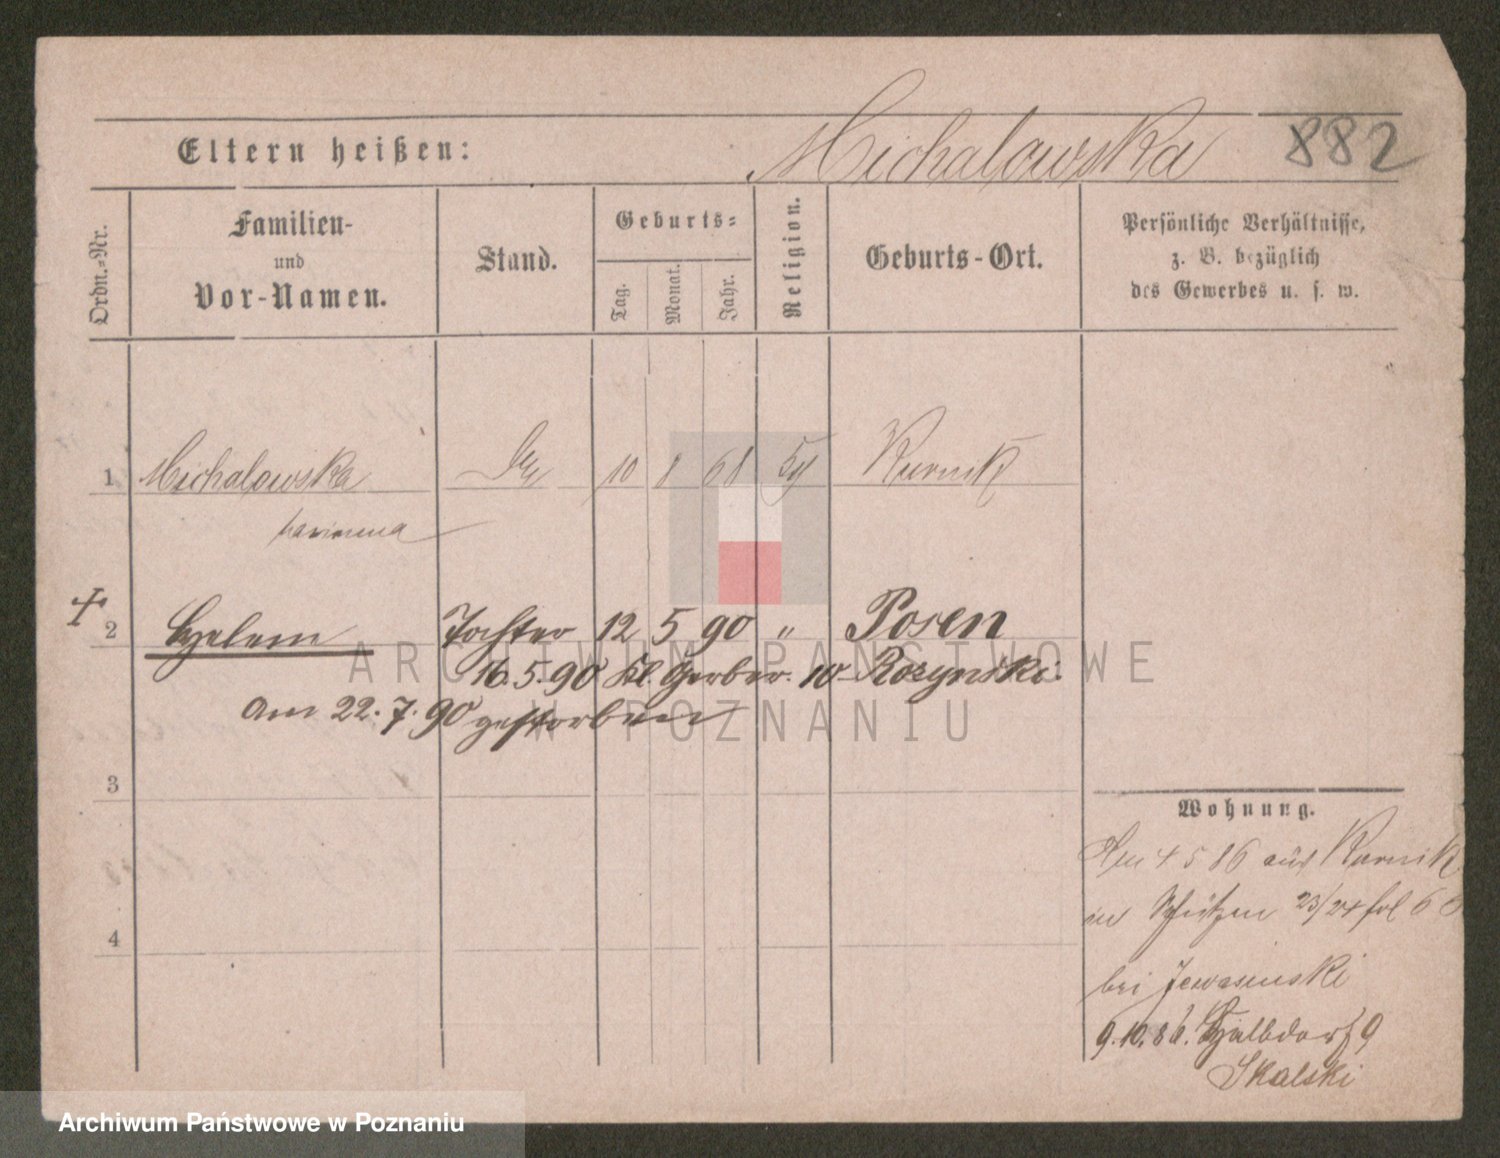 Eltern heißen: Michalowska 882
Ordn.-Nr.
Familien-
und
Vor-Namen.
Stand.
Geburts-
Tag. Monat. Jahr.
Religion.
Geburts-Ort.
Persönliche Verhältnisse,
z. B. bezüglich
des Gewerbes u. s. w.
1 Michalowska 10 8 68 Kurnik
2 Helene Tochter 12 5 90 " Posen
16.5.90 Kl. Gerber. 10 Rozynski.
Am 22.7.90 gestorben
3
4
Wohnung.
4 5 86 aus Kurnik
in Schützen 23/24 fol
bei
9.10.86. Halbdorf 9
Skalski
ARCHIWUM PAŃSTWOWE
W POZNANIU
Archiwum Państwowe w Poznaniu